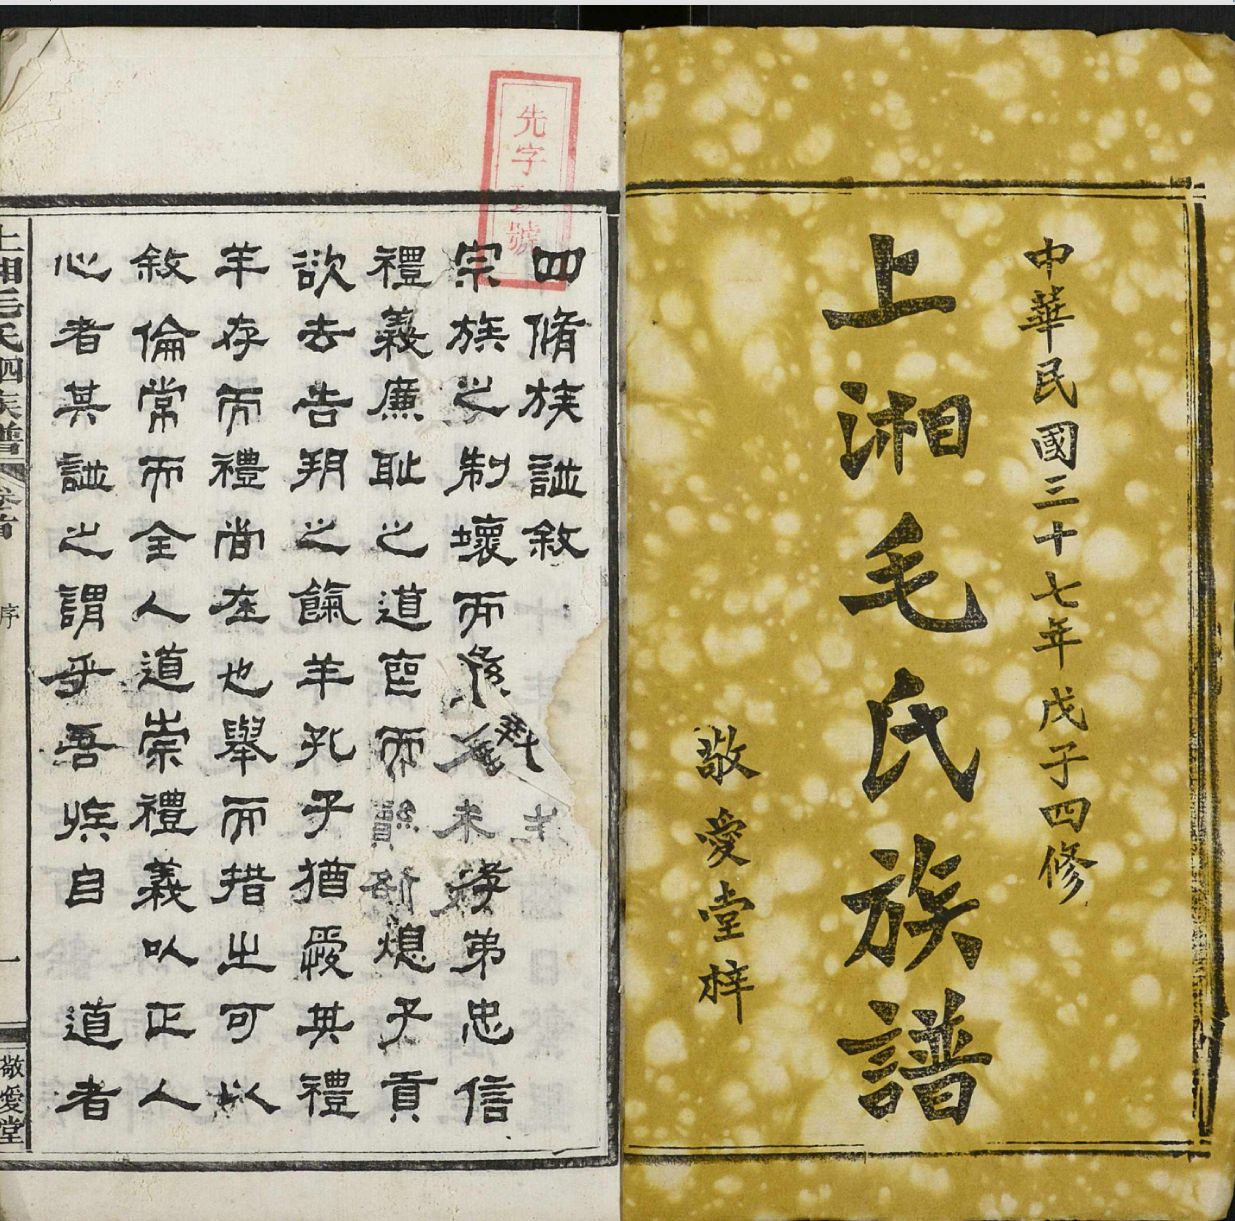 中華民國三十七年戊子四修
上湘毛氏族譜
敬愛堂梓
先字
號
四脩族譜敘
宗族之制壞而後人未孝弟忠信
禮義廉恥之道晦而熄子貢
欲去告朔之餼羊孔子猶愛其禮
羊存而禮尚在也舉而措之可以
敘倫常而全人道崇禮義以正人
心者其譜之謂乎吾族自道者
上湘毛氏四族譜
卷首
序
一
敬愛堂